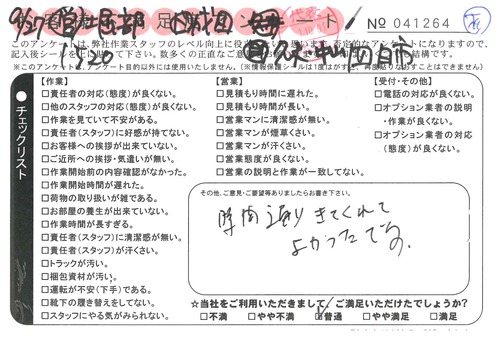 9/27
足 ート
No 041264
13:20
このアンケートは、弊社作業スタッフのレベル向上に役
記入後シールを
※このアンケートは、アンケート目的以外には使用いたしません。
チェックリスト
【作業】
□責任者の対応(態度)が良くない。
□他のスタッフの対応(態度)が良くない。
□作業を見ていて不安がある。
□責任者(スタッフ)に好感が持てない。
□お客様への挨拶が出来ていない。
□ご近所への挨拶・気遣いが無い。
□作業開始前の内容確認がなかった。
□作業開始時間が遅れた。
□荷物の取り扱いが雑である。
□お部屋の養生が出来ていない。
□作業時間が長すぎる。
□責任者(スタッフ)に清潔感が無い。
□責任者(スタッフ)が汗くさい。
□トラックが汚い。
□梱包資材が汚い。
□運転が不安(下手)である。
□靴下の履き替えをしてない。
□スタッフにやる気がみられない。
【営業】
□見積もり時間に遅れた。
□見積もり時間が長い。
□営業マンに清潔感が無い。
□営業マンが煙草くさい。
□営業マンが汗くさい。
□営業態度が良くない。
□営業の説明と作業が一致してない。
【受付・その他】
□電話の対応が良くない。
□オプション業者の説明
・作業が良くない。
□オプション業者の対応
(態度)が良くない。
その他、ご意見・ご要望等ありましたらお書き下さい。
時間通りきてくれて
よかったです。
☆当社をご利用いただきまして、ご満足いただけたでしょうか?
□不満 □やや不満 □普通 □やや満足 □満足